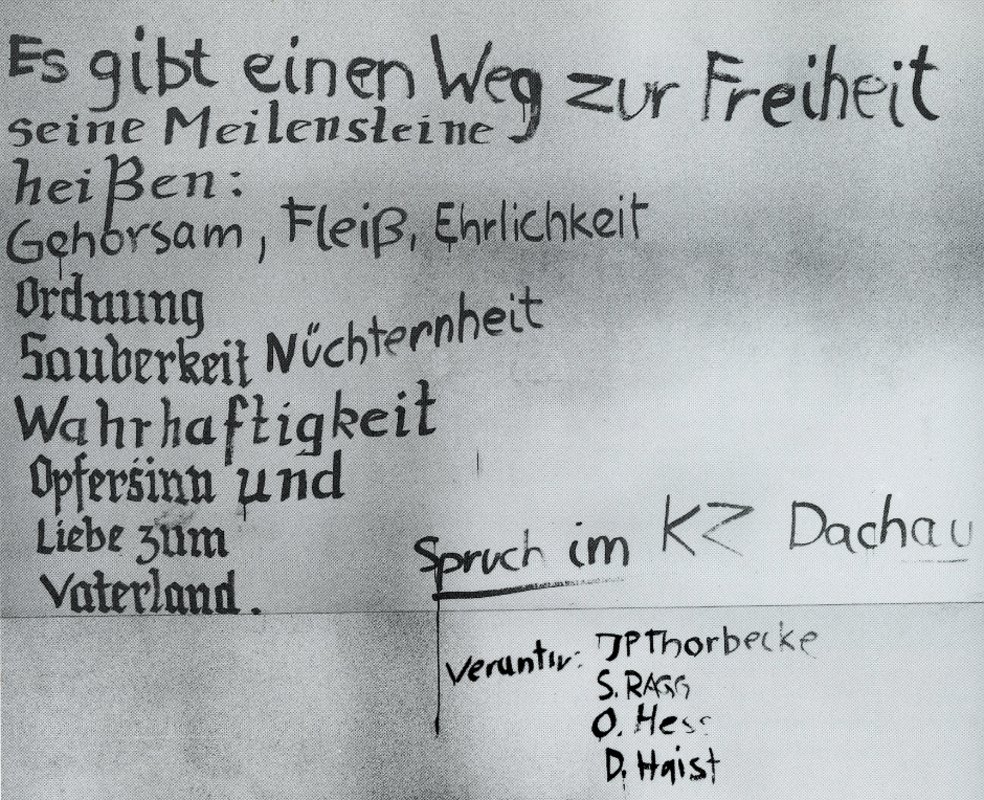 Es gibt einen Weg zur Freiheit
seine Meilensteine
heißen:
Gehorsam, Fleiß, Ehrlichkeit
Ordnung
Sauberkeit Nüchternheit
Wahrhaftigkeit
Opfersinn und
Liebe zum
Vaterland.
Spruch im KZ Dachau
Verantw: JPThorbecke
S. RAGG
O. Hess
D. Haist